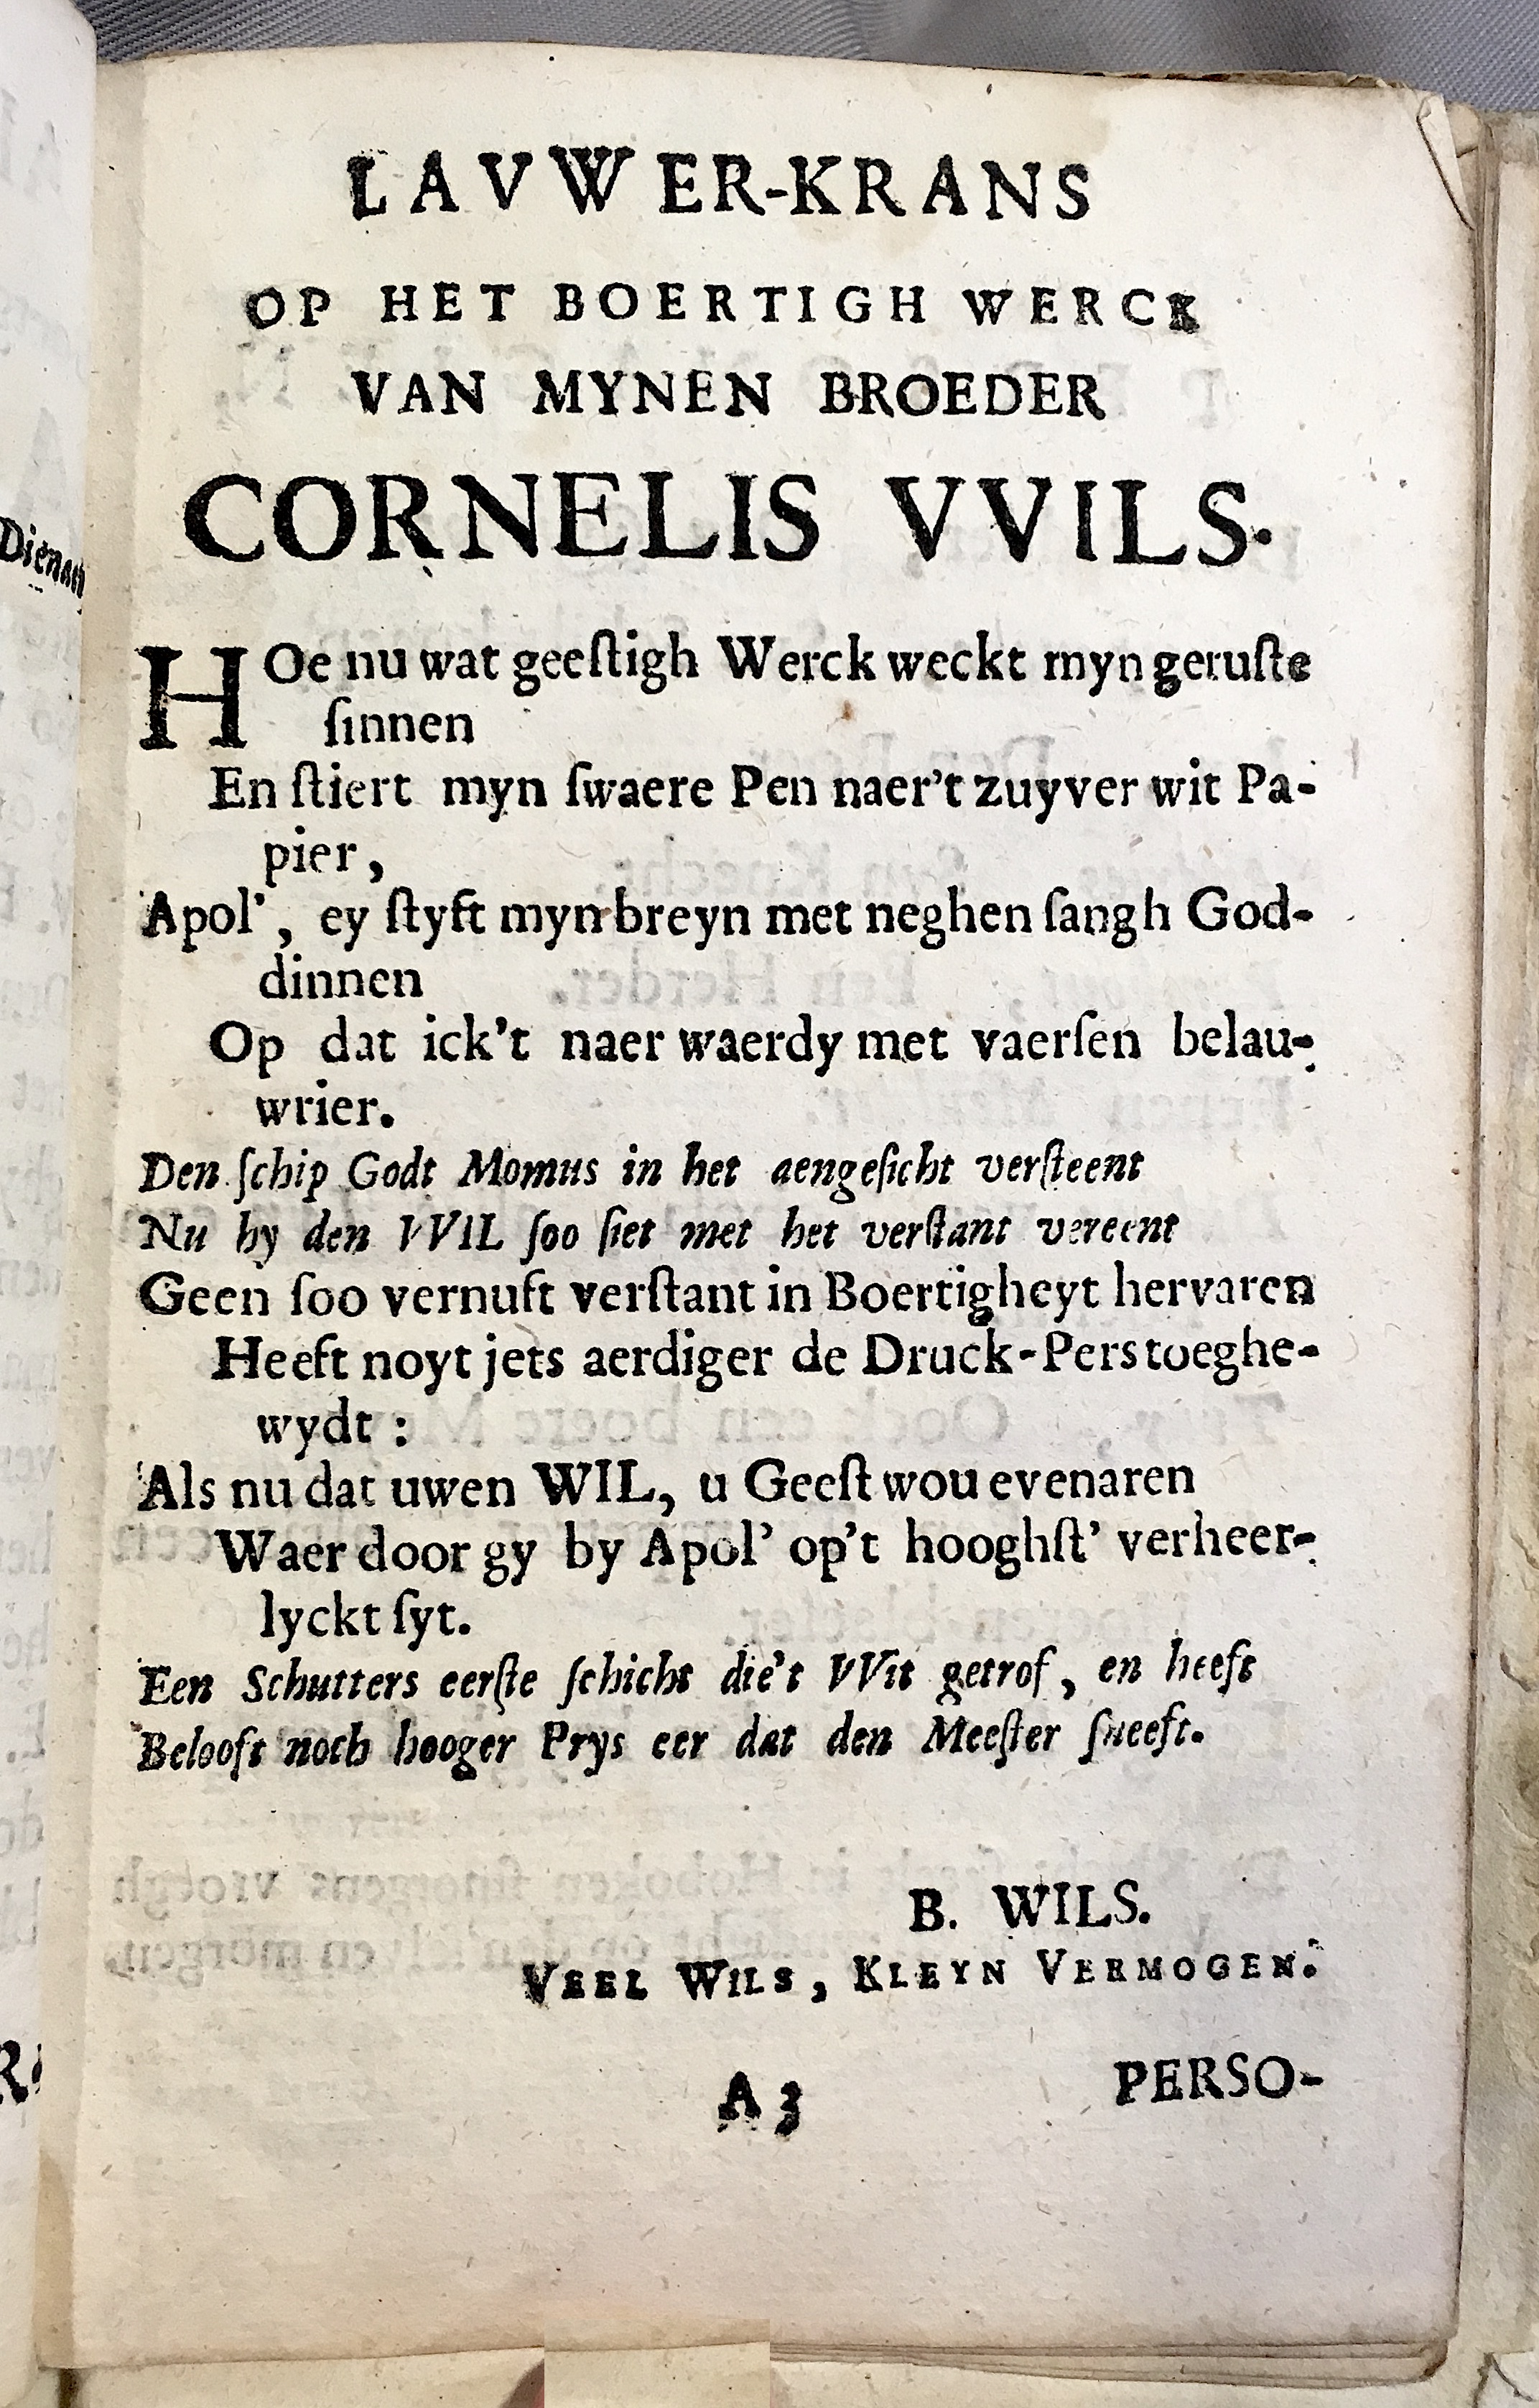 LAVWER-KRANS
OP HET BOERTIGH WERCK
VAN MYNEN BROEDER
CORNELIS VVILS.
HOe nu wat geeſtigh Werck weckt myn geruſte
ſinnen
En ſtiert myn ſwaere Pen naer't zuyver wit Pa-
pier,
Apol', ey ſtyft myn breyn met neghen ſangh God-
dinnen
Op dat ick't naer waerdy met vaerſen belau-
wrier.
Den ſchip Godt Momus in het aengeſicht verſteent
Nu hy den VVIL ſoo ſiet met het verſtant vereent
Geen ſoo vernuft verſtant in Boertigheyt hervaren
Heeft noyt jets aerdiger de Druck-Pers toeghe-
wydt :
Als nu dat uwen WIL, u Geeſt wou evenaren
Waer door gy by Apol' op't hooghſt' verheer-
lyckt ſyt.
Een Schutters eerſte ſchicht die't VVit getrof, en heeft
Belooft noch hooger Prys eer dat den Meeſter ſneeft.
B. WILS.
VEEL WILS, KLEYN VERMOGEN.
A 3
PERSO-
Dienaer